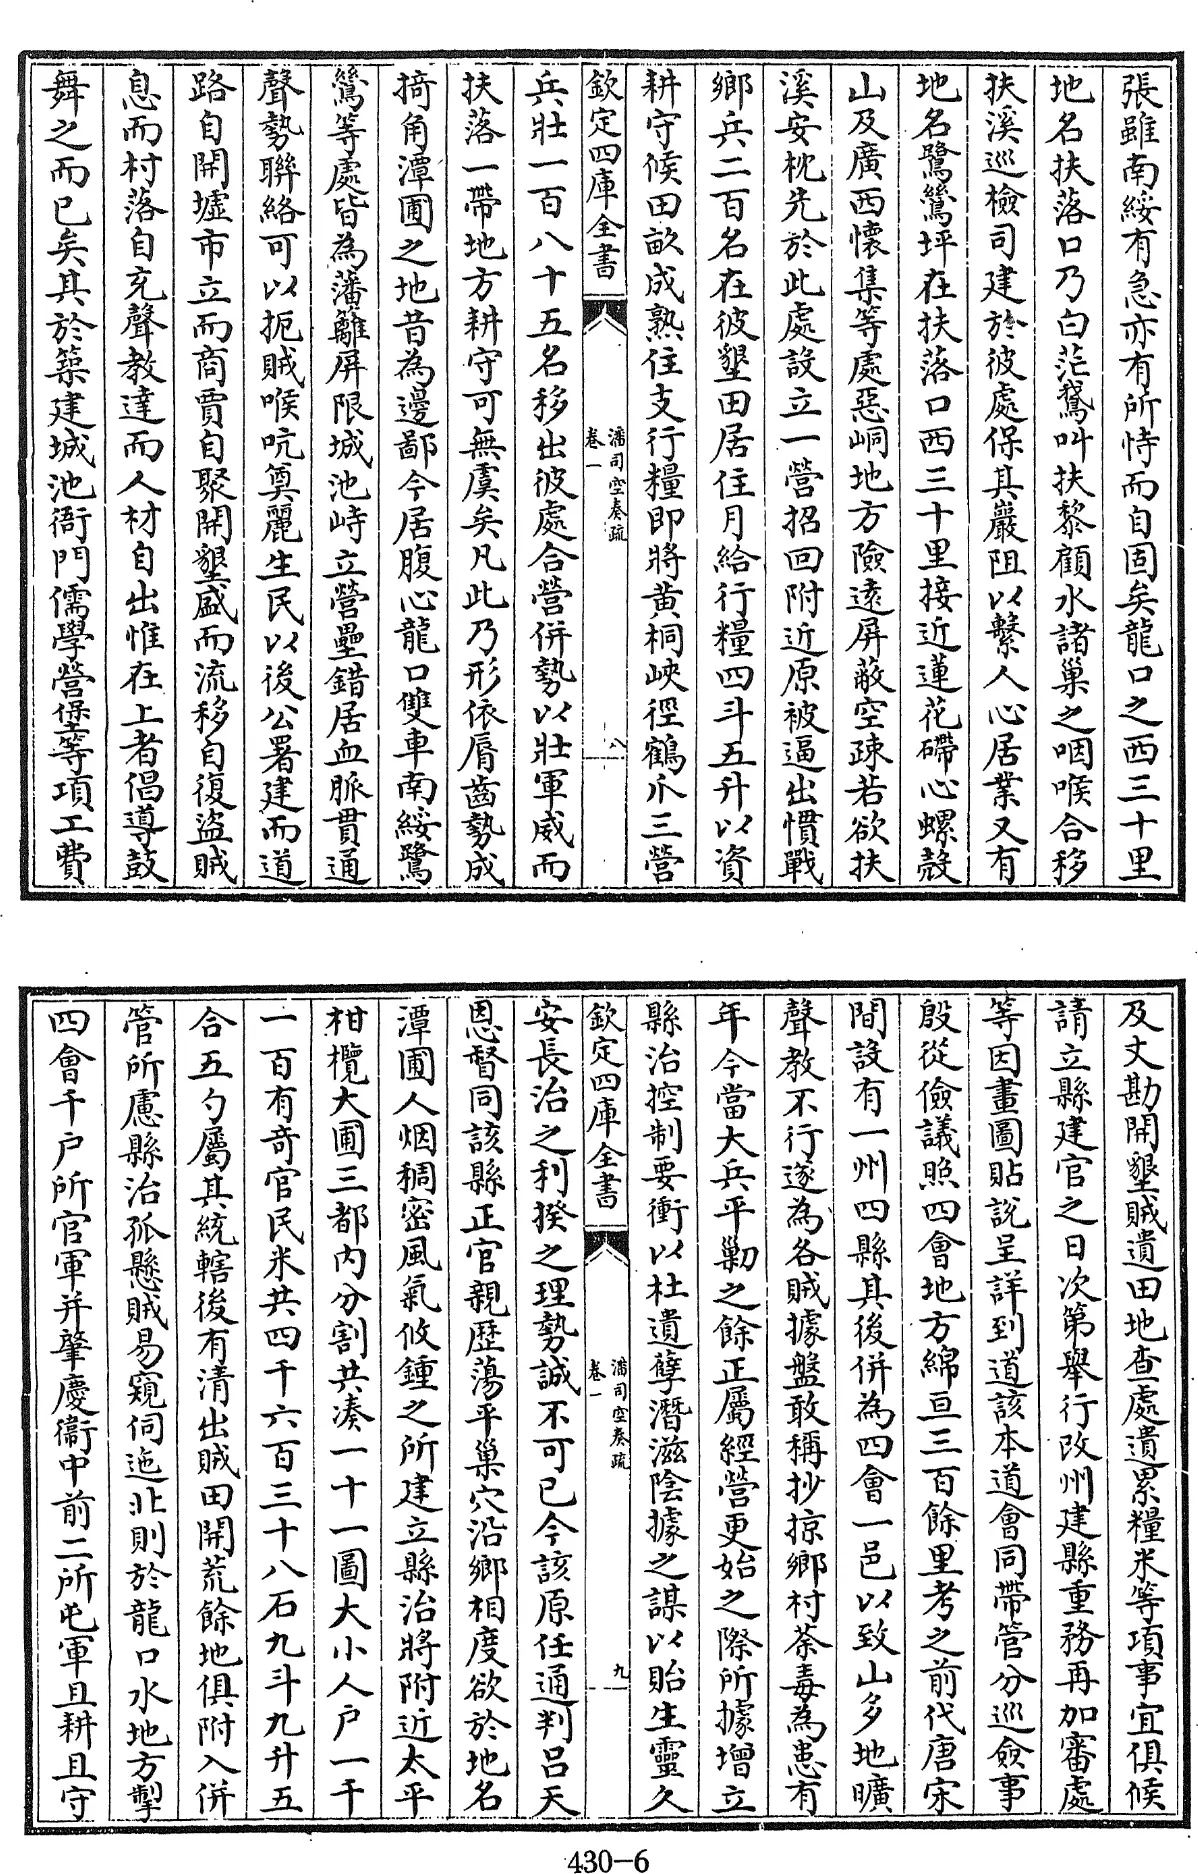 張雖南綏有急亦有所恃而自固矣龍口之西三十里
地名扶落口乃白茫鵞叫扶黎顧水諸巢之咽喉合移
扶溪巡檢司建於彼處保其巖阻以繫人心居業又有
地名鷺鷥坪在扶落口西三十里接近蓮花磜心螺殼
山及廣西懷集等處惡峒地方險遠屏蔽空疎若欲扶
溪安枕先於此處設立一營招回附近原被逼出慣戰
鄉兵二百名在彼墾田居住月給行糧四斗五升以資
耕守候田畝成熟住支行糧即將黄桐峽徑鶴爪三營
欽定四庫全書
潘司空奏疏
卷一
八
兵壯一百八十五名移出彼處合營併勢以壯軍威而
扶落一帶地方耕守可無虞矣凡此乃形依脣齒勢成
掎角潭圃之地昔為邊鄙今居腹心龍口雙車南綏鷺
鷥等處皆為藩籬屏限城池峙立營壘錯居血脈貫通
聲勢聯絡可以扼賊喉吭奠麗生民以後公署建而道
路自開墟市立而商賈自聚開墾盛而流移自復盜賊
息而村落自充聲教達而人材自出惟在上者倡導鼓
舞之而已矣其於築建城池衙門儒學營堡等項工費
及丈勘開墾賊遺田地查處遺累糧米等項事宜俱候
請立縣建官之日次第舉行改州建縣重務再加審處
等因畫圖貼說呈詳到道該本道會同帶管分巡僉事
殷從儉議照四會地方綿亘三百餘里考之前代唐宋
間設有一州四縣其後併為四會一邑以致山多地曠
聲教不行遂為各賊據盤敢稱抄掠鄉村荼毒為患有
年今當大兵平勦之餘正屬經營更始之際所據增立
縣治控制要衝以杜遺孽潛滋陰據之謀以貽生靈久
欽定四庫全書
潘司空奏疏
卷一
九
安長治之利揆之理勢誠不可已今該原任通判呂天
恩督同該縣正官親歴蕩平巢穴沿鄉相度欲於地名
潭圃人烟稠密風氣攸鍾之所建立縣治將附近太平
柑欖大圃三都内分割共湊一十一圖大小人户一千
一百有奇官民米共四千六百三十八石九斗九升五
合五勺屬其統轄後有清出賊田開荒餘地俱附入併
管所慮縣治孤懸賊易窺伺迤北則於龍口水地方掣
四會千户所官軍并肇慶衞中前二所屯軍且耕且守
430-6